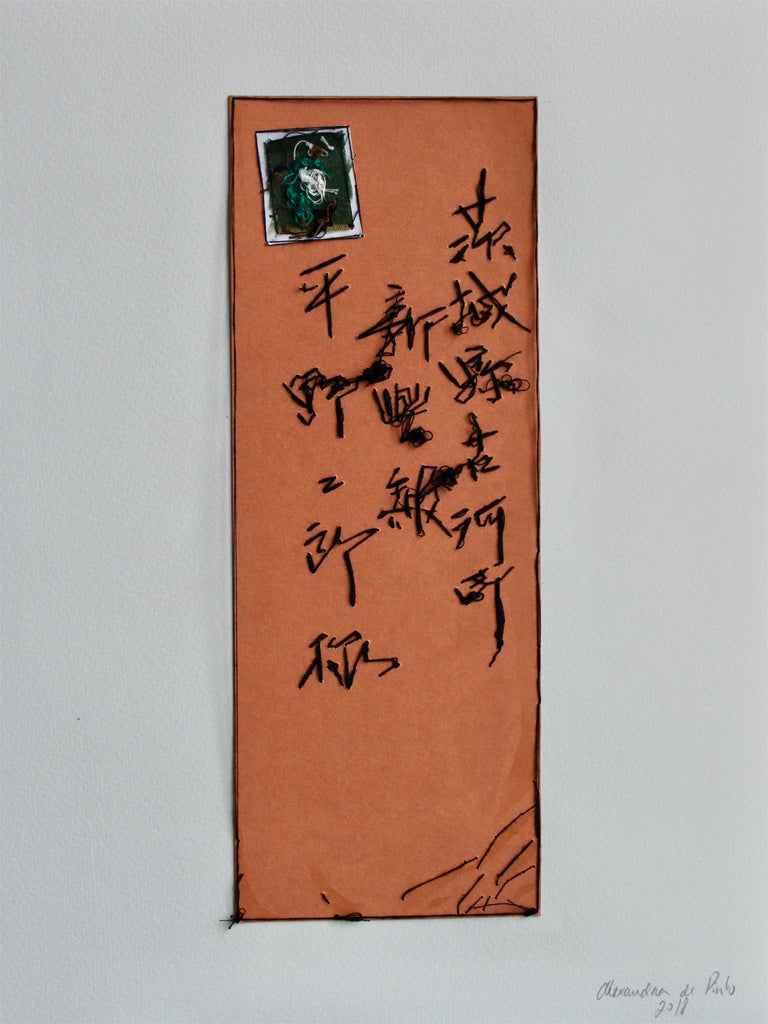 茨城縣古河町
新
平野二郎様
Alexandra de Pinho
2018